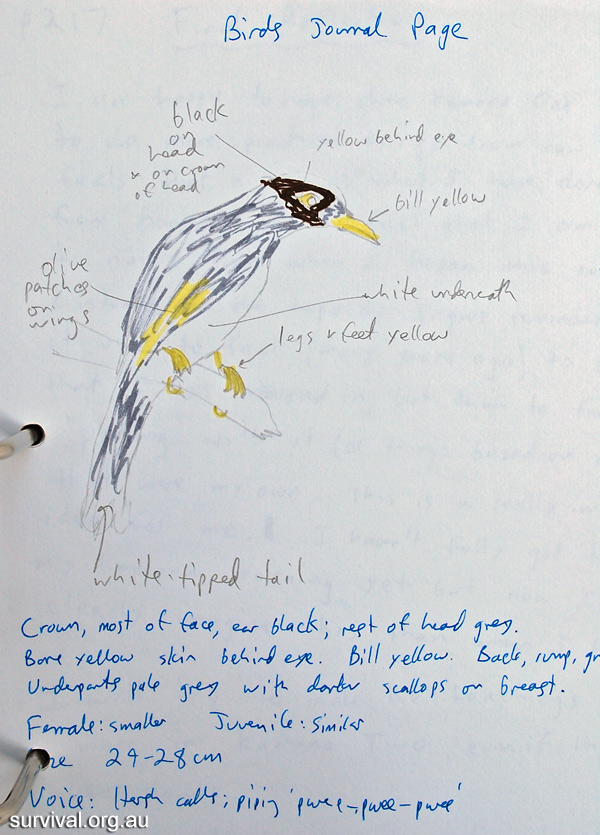 Birds Journal Page
black
on
head
& on crown
of head
yellow behind eye
bill yellow
olive
patches
on
wings
white underneath
legs & feet yellow
white-tipped tail
Crown, most of face, ear black; rest of head grey.
Bare yellow skin behind eye. Bill yellow. Back, rump,
Underparts pale grey with darker scallops on breast.
Female: smaller Juvenile: similar
24-28cm
Voice: Harsh calls; piping 'pwee-pwee-pwee'
survival.org.au